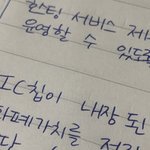 호스팅 서비스 제
운영할 수 있도록
IC칩이 내장된
화폐가치를 저